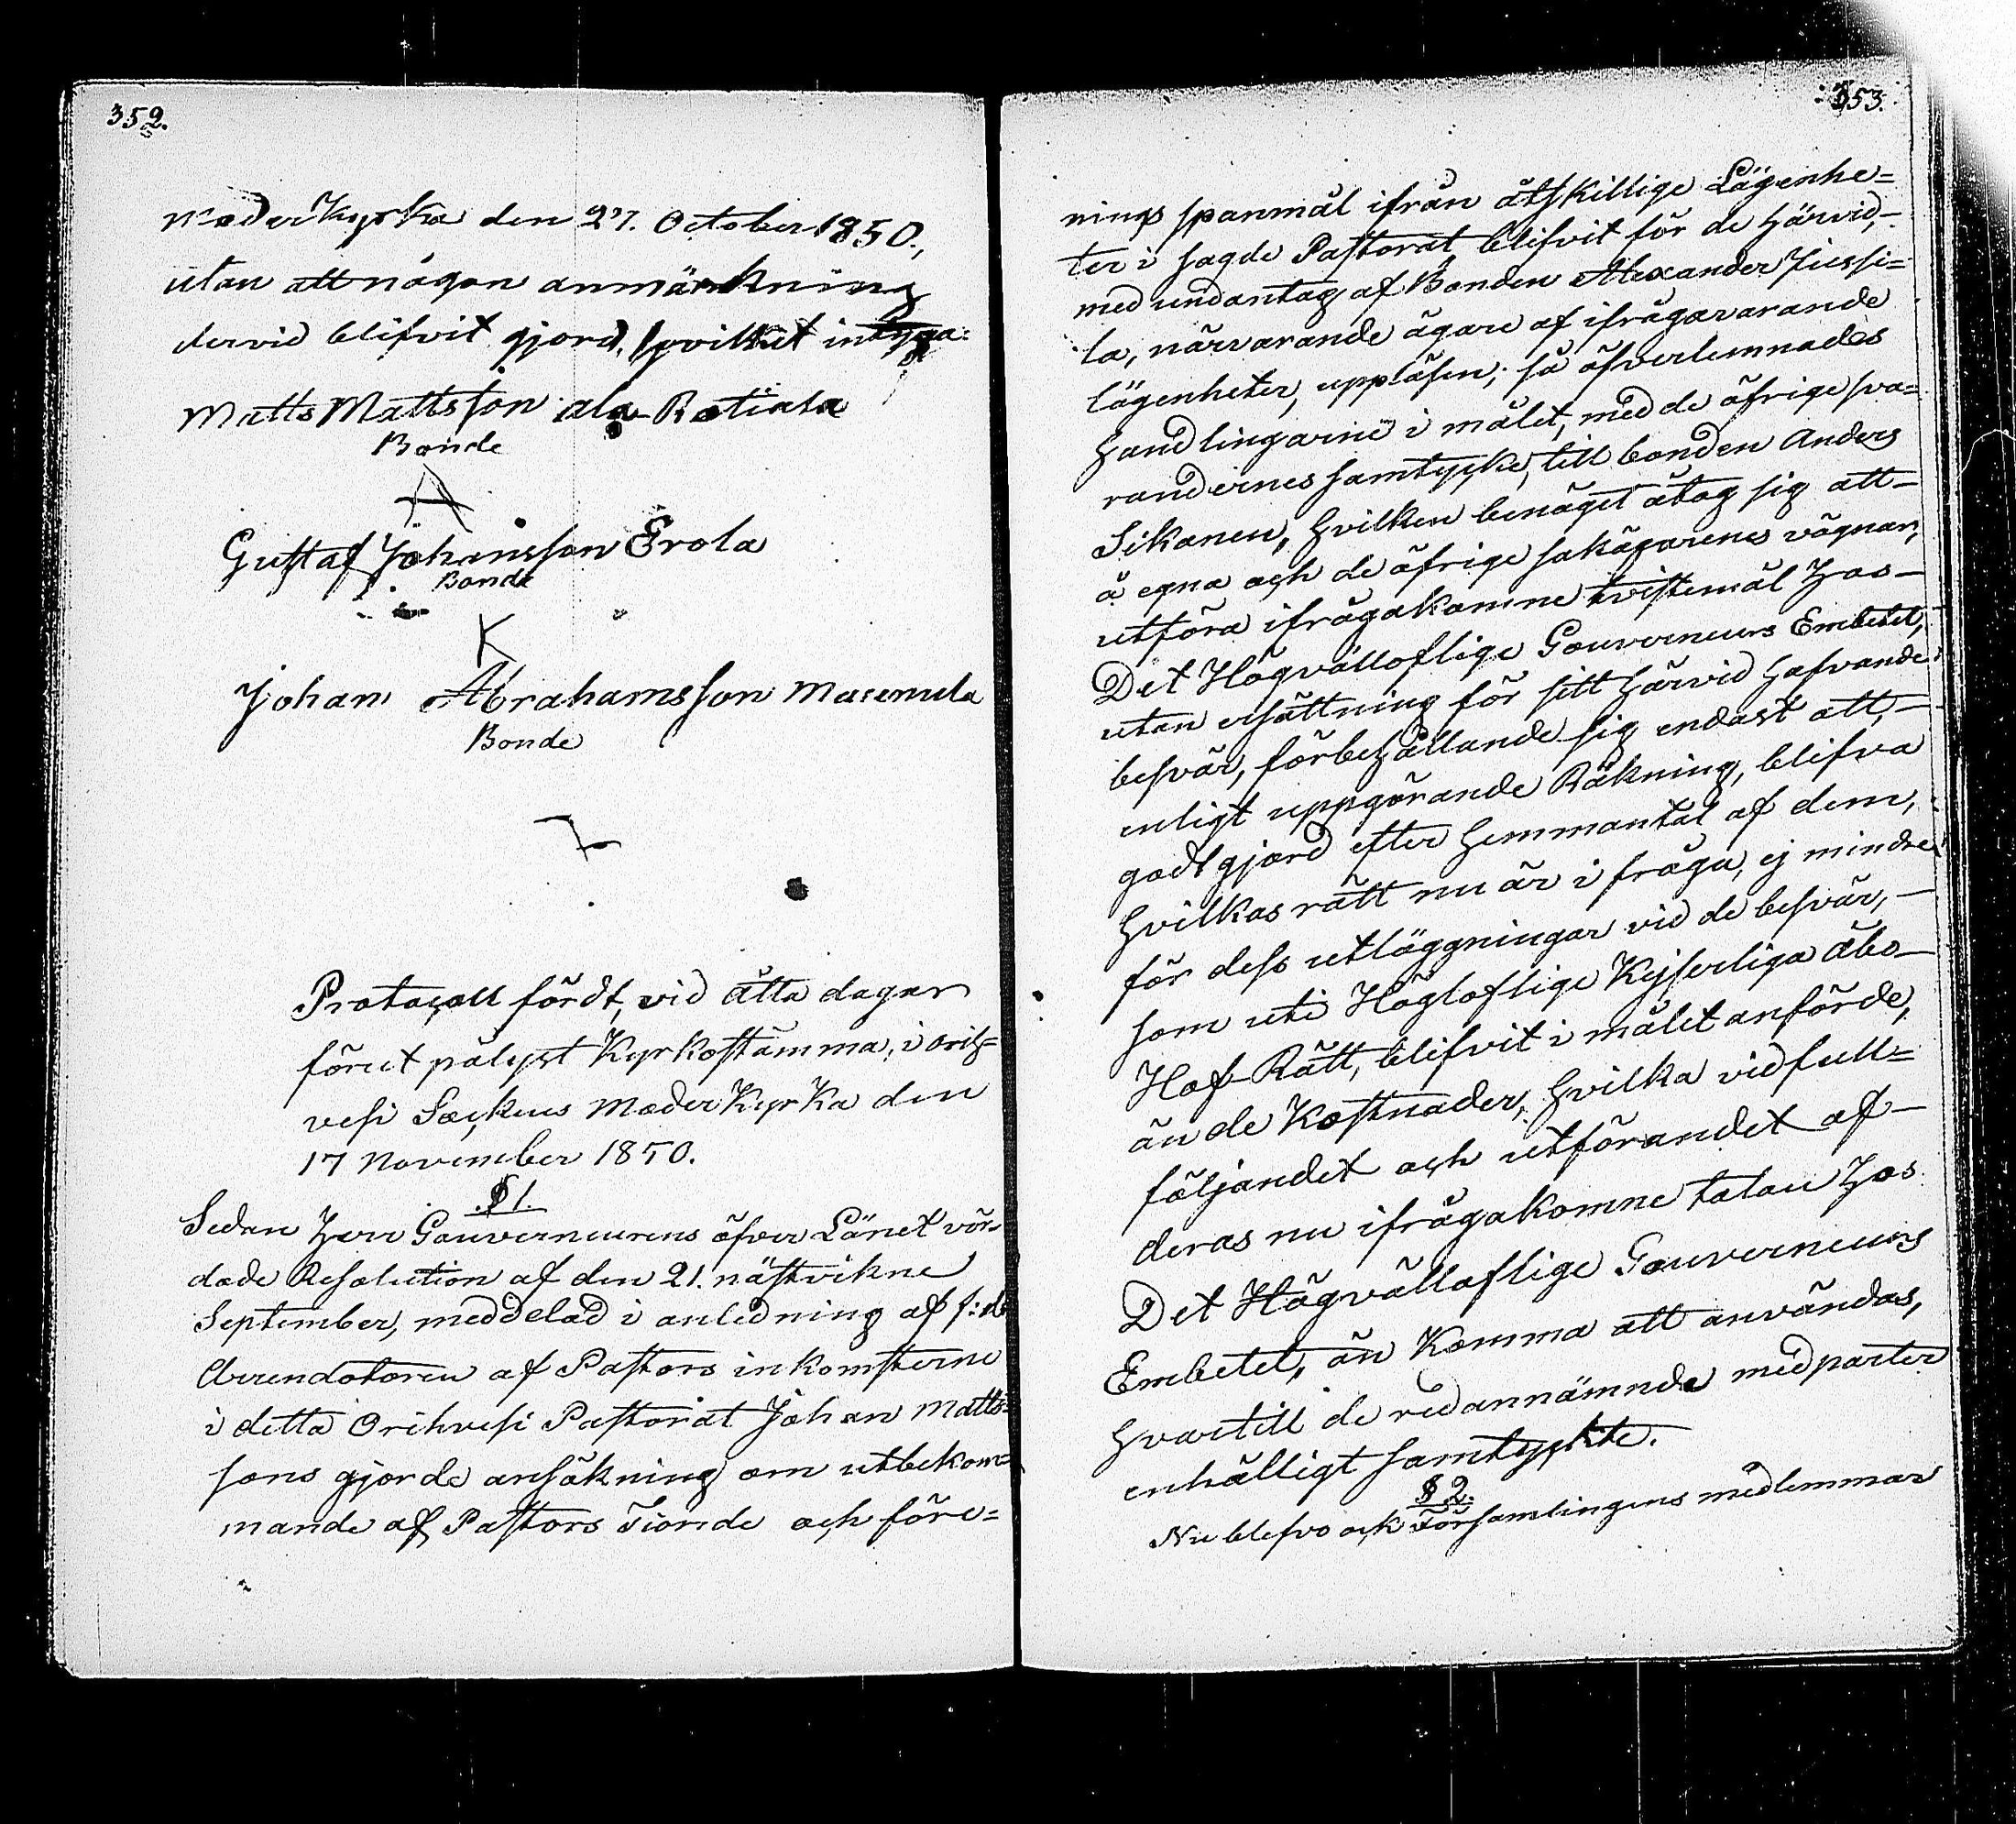 352.
moderkyrka den 27. October 1850.,
utan att någon anmärkning
dervid blifvit gjord, hvilket intyga:
Matts Mattsson ala Ratiala
Bonde
Gustaf Johansson Erola
Bonde
K
Johan Abrahamsson Muremula
Bonde
Protocoll fördt, vid åtta dagar
förut pålyst Kyrkostämma, i orih=
vesi Sockens Moder Kyrka den
17 November 1850.
§ 1.
Sedan Herr Gouverneurens öfver Länet vör-
dade Resolution af den 21. nästvikne
September, meddelad i anledning af f: d:
Arrendatoren af Pastors inkomsterne
i detta Orihvesi Pastorat Johan Matts=
sons gjorde ansökning om utbekom=
mande af Pastors Tionde och före=
353.
nings spanmål ifrån åtskillige Lägenhe=
ter i sagde Pastorat blifvit för de härvid,-
med undantag af Bonden Alexander Jussi=
la, närvarande ägare af ifrågavarande
lägenheter, uppläsen; så öfverlemnades
handlingarne i målet, med de öfrige sva=
randernes samtycke, till bonden Anders
Sikanen, hvilken benäget åtog sig att-
å egna och de öfrige sakägarens vägnar,
utföra ifrågakomne tvistemål hos-
Det Högvälloflige Gouverneurs Embetet,
utan ersättning för sitt härvid hafvande
besvär, förbehållande sig endast att,-
enligt uppgörande Räkning, blifva
godtgjord efter hemmantal af dem,
hvilkas rätt nu är i fråga, ej mindre
för dess utläggningar vid de besvär,-
som uti Högloflige Kejserliga Åbo-
Hof-Rätt, blifvit i målet anförde,
än de Kostnader, hvilka vid full=
följandet och utförandet af-
deras nu ifrågakomne talan hos
Det Högvälloflige Gouverneurs
Embetet, än Komma att användas,
hvartill de redannämnde medparter
enhälligt samtyckte.
§ 2.
Nu blefvo ock Församlingens medlemmar